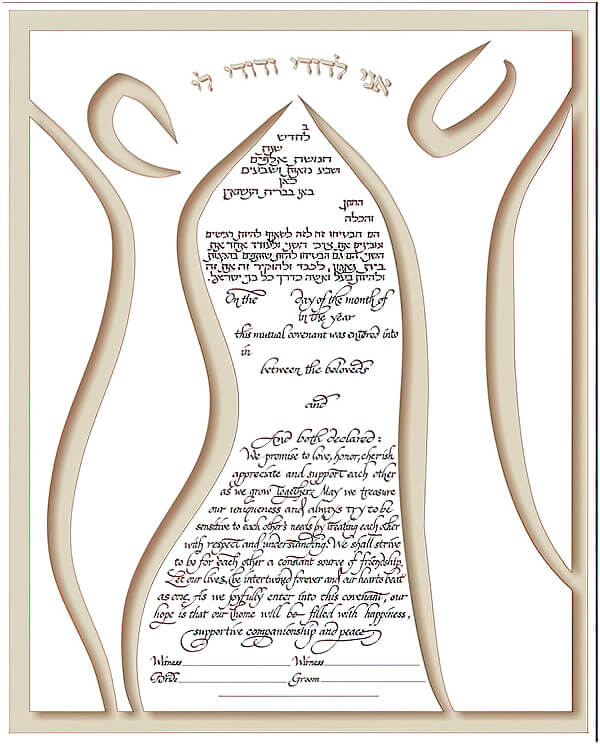 אני לדודי ודודי לי
ב
לחדש
שנת
חמשת אלפים
ושבע מאות ושבעים
כאן
באו בברית הנשואין
החתן
והכלה
הם הבטיחו זה לזה לשאוף להיות רגישים
השני הם גם הבטיחו להיות שותפים בהקמת
בית נאמן, לכבד ולהוקיר זה את זה
ולהיות בעל ואשה כדרך כל בני ישראל.
On the day of the month of
in the year
this mutual covenant was entered into
in
between the beloveds
and
And both declared:
We promise to love, honor, cherish
appreciate and support each other
as we grow together. May we treasure
our uniqueness and always try to be
sensitive to each other's needs by treating each other
with respect and understanding. We shall strive
to be for each other a constant source of friendship.
Let our lives be intertwined forever and our hearts beat
as one. As we joyfully enter into this covenant, our
hope is that our home will be filled with happiness,
supportive companionship and peace
Witness Witness
Bride Groom